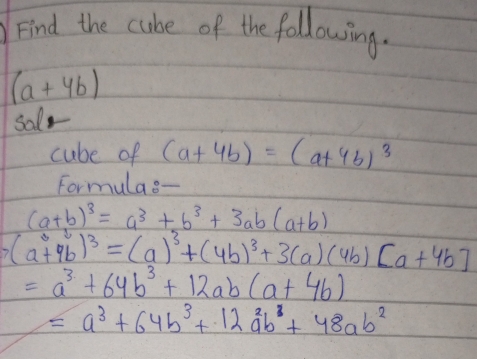 ) Find the cube of the following.
(a + 4b)
Sol:-
cube of (a+4b) = (a+4b)³
Formula:-
(a+b)³ = a³ + b³ + 3ab(a+b)
(a+4b)³ = (a)³+(4b)³+3(a)(4b) [a+4b]
= a³ + 64b³ + 12ab(a+4b)
= a³ + 64b³ + 12a²b + 48ab²